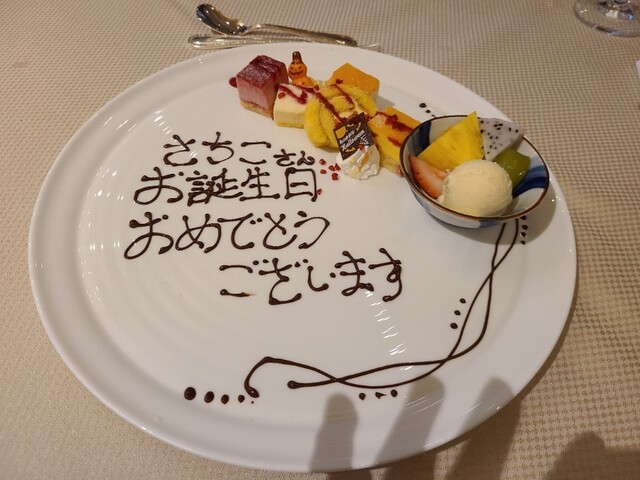 さちこさん
お誕生日
おめでとう
ございます